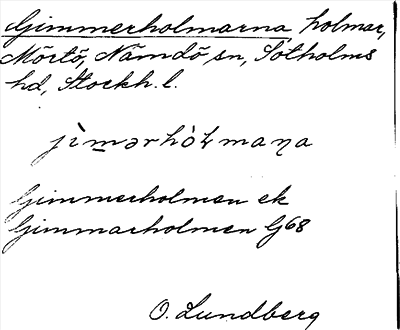 Gimmerholmarna holmar,
Mörtö, Nämdö sn, Sotholms
hd, Stockh. l.
jìmərhòɫmaṇa
Gimmerholmen ek
Gimmarholmen G68
O. Lundberg